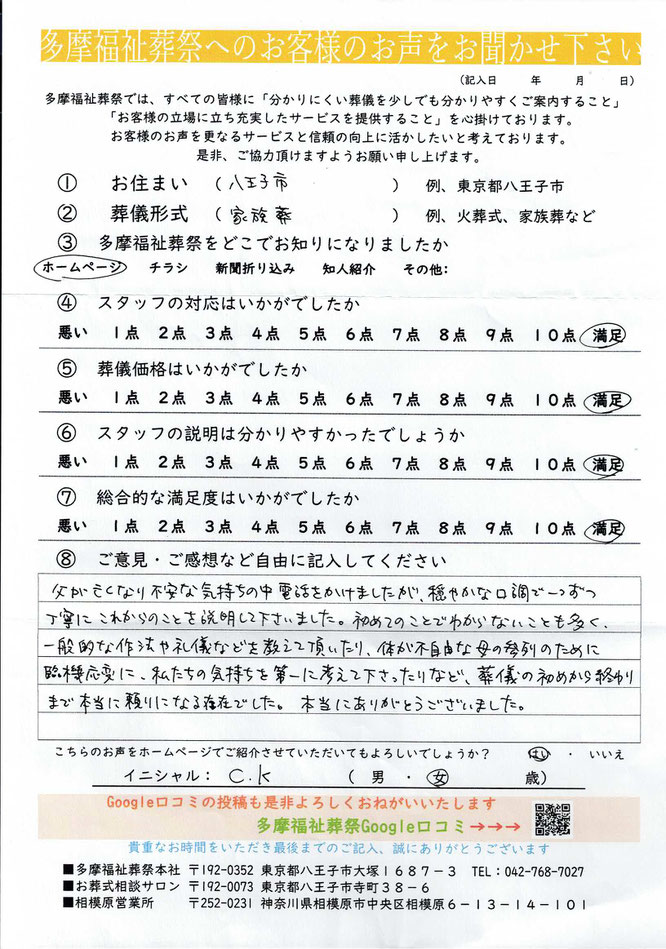 多摩福祉葬祭へのお客様のお声をお聞かせ下さい
（記入日　　年　　月　　日）
多摩福祉葬祭では、すべての皆様に「分かりにくい葬儀を少しでも分かりやすくご案内すること」
「お客様の立場に立ち充実したサービスを提供すること」を心掛けております。
お客様のお声を更なるサービスと信頼の向上に活かしたいと考えております。
是非、ご協力頂けますようお願い申し上げます。
① お住まい （八王子市　　　） 例、東京都八王子市
② 葬儀形式 （家族葬　　　） 例、火葬式、家族葬など
③ 多摩福祉葬祭をどこでお知りになりましたか
ホームページ　チラシ　新聞折り込み　知人紹介　その他：
④ スタッフの対応はいかがでしたか
悪い　１点　２点　３点　４点　５点　６点　７点　８点　９点　１０点　満足
⑤ 葬儀価格はいかがでしたか
悪い　１点　２点　３点　４点　５点　６点　７点　８点　９点　１０点　満足
⑥ スタッフの説明は分かりやすかったでしょうか
悪い　１点　２点　３点　４点　５点　６点　７点　８点　９点　１０点　満足
⑦ 総合的な満足度はいかがでしたか
悪い　１点　２点　３点　４点　５点　６点　７点　８点　９点　１０点　満足
⑧ ご意見・ご感想など自由に記入してください
父が亡くなり不安な気持ちの中電話をかけましたが、穏やかな口調で一つずつ
丁寧にこれからのことを説明して下さいました。初めてのことでわからないことも多く、
一般的な作法や礼儀などを教えて頂いたり、体が不自由な母の参列のために
臨機応変に、私たちの気持ちを第一に考えて下さったりなど、葬儀の初めから終わり
まで本当に頼りになる存在でした。本当にありがとうございました。
こちらのお声をホームページでご紹介させていただいてもよろしいでしょうか？　はい ・ いいえ
イニシャル： C.K （ 男 ・ 女　　歳）
Google口コミの投稿も是非よろしくおねがいいたします
多摩福祉葬祭Google口コミ→→→
貴重なお時間をいただき最後までのご記入、誠にありがとうございます
■多摩福祉葬祭本社 〒192-0352 東京都八王子市大塚１６８７－３ TEL：042-768-7027
■お葬式相談サロン 〒192-0073 東京都八王子市寺町３８－６
■相模原営業所 〒252-0231 神奈川県相模原市中央区相模原６－１３－１４－１０１